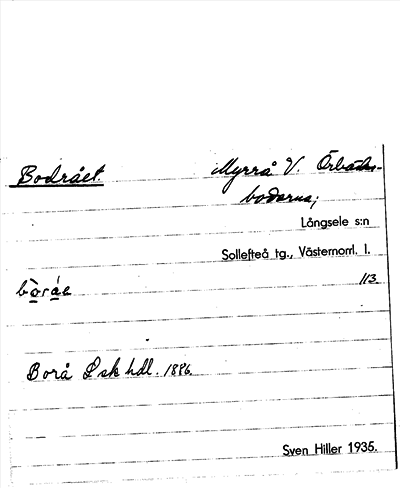 Bodrået. Myrrå V. Örbäcks-
bodarna;
Långsele s:n
Sollefteå tg., Västernorrl. l.
bòráe 113
Borå L sk hdl. 1886
Sven Hiller 1935.